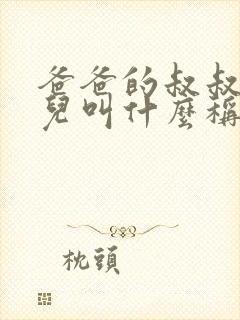 爸爸的叔叔
兒叫什麼稱
枕頭